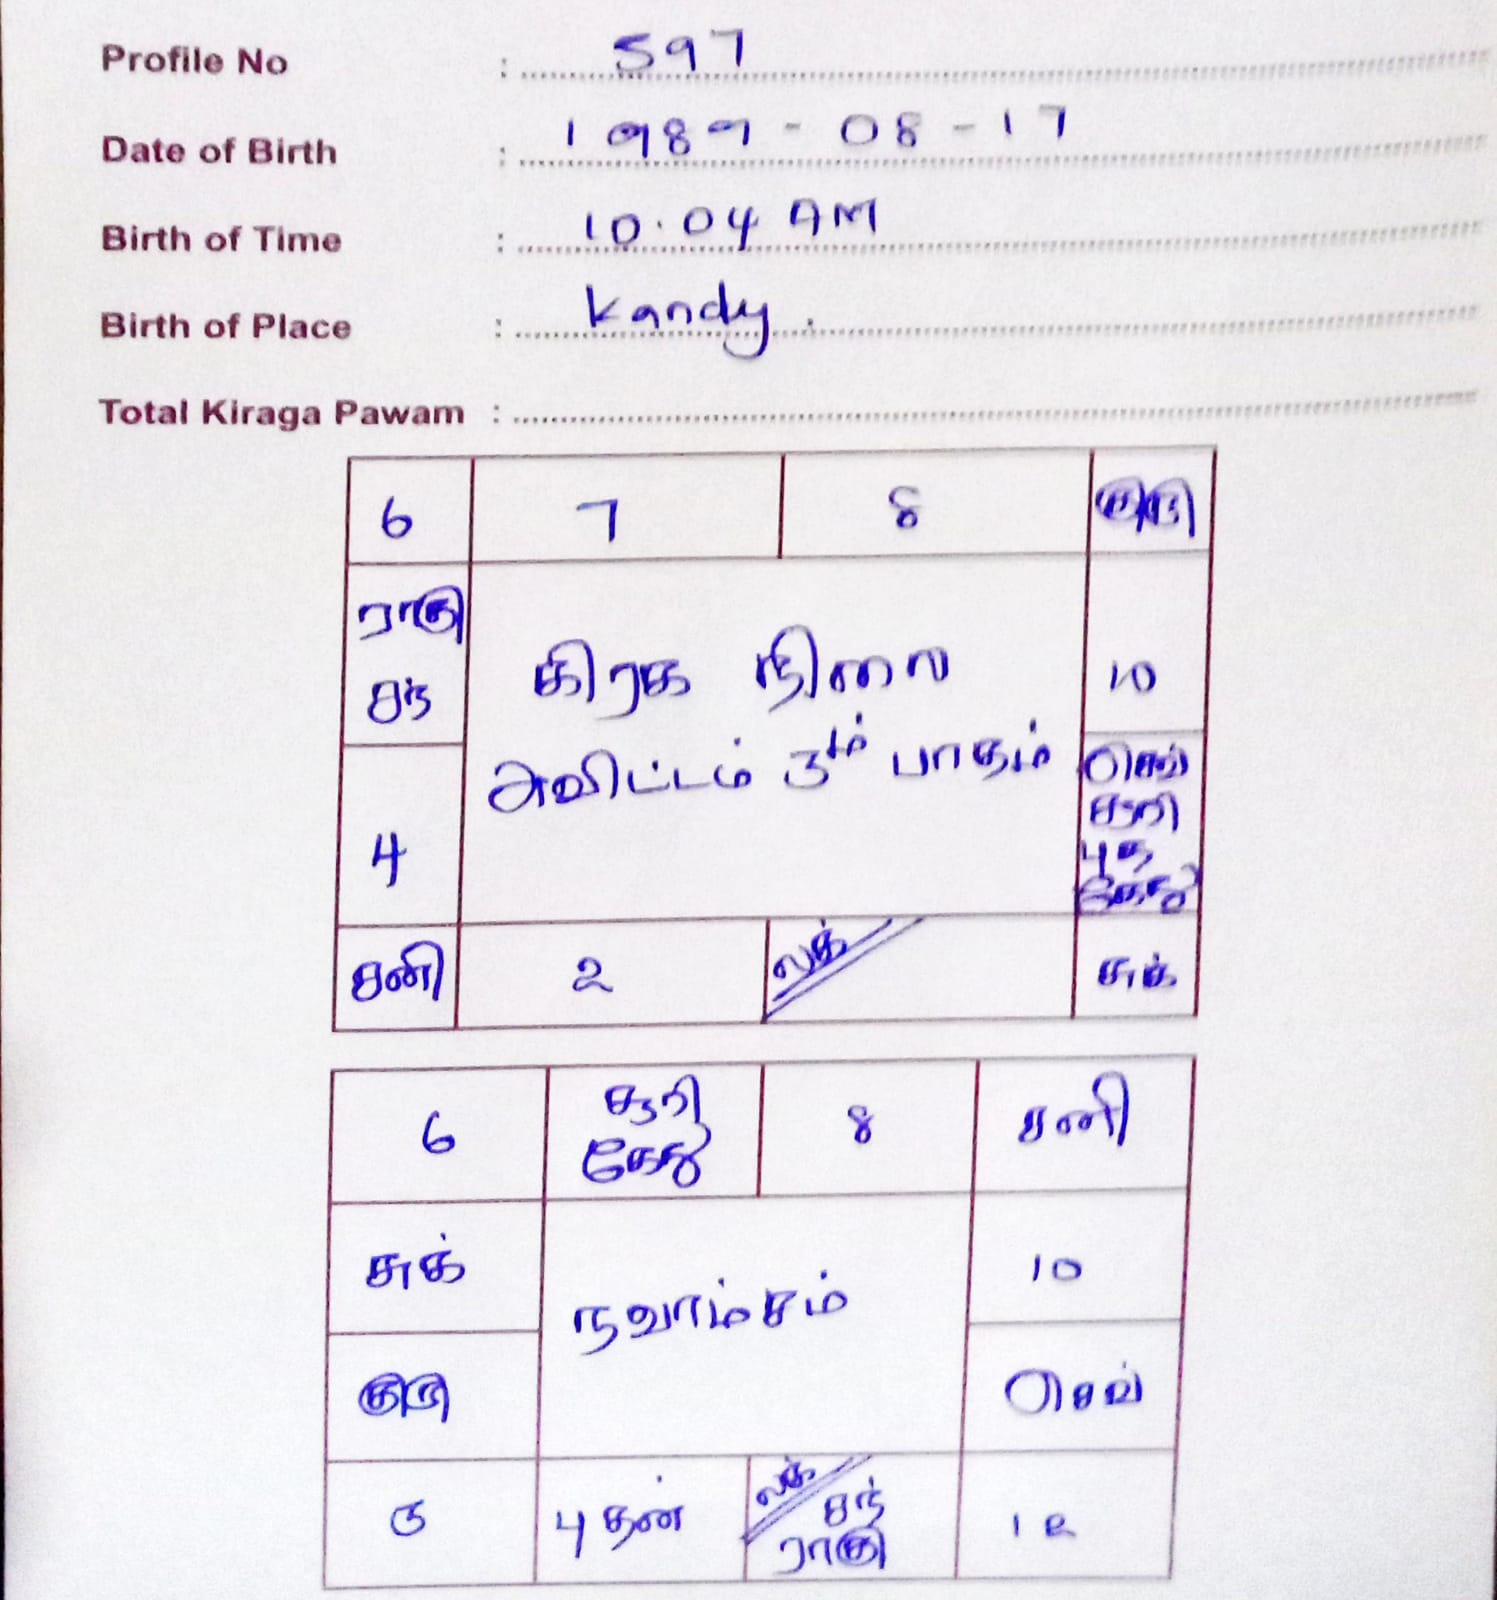 Profile No : 597
Date of Birth : 1989-08-17
Birth of Time : 10.04 AM
Birth of Place : Kandy.
Total Kiraga Pawam :
6 7 8 குரு
ராகு
சந்
கிரக நிலை
10
அவிட்டம் 3ம் பாதம்
4
செவ்
சூரி
புத
கேது
சனி 2 லக் சுக்
6 சூரி கேது 8 சனி
சுக் 10
நவாம்சம்
குரு செவ்
3 புதன் லக் சந் ராகு 12